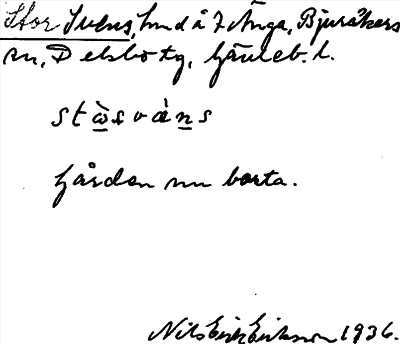 Stor Svens, hmd å 7 Änga, Bjuråkers
sn, Delsbo tg, Gävleb. l.
stɷ̀svàns
Gården nu borta.
Nils Erik Eriksson 1936.